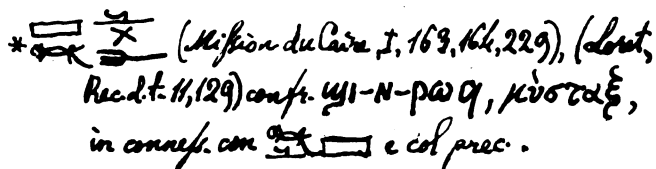 * (Mission du Caire, I, 163, 164, 229), (Loret,
Rec. d. t. 11, 129) confr. ϣⲓ-ⲛ-ⲣⲱϥ, μύσταξ,
in conness. con e col prec.